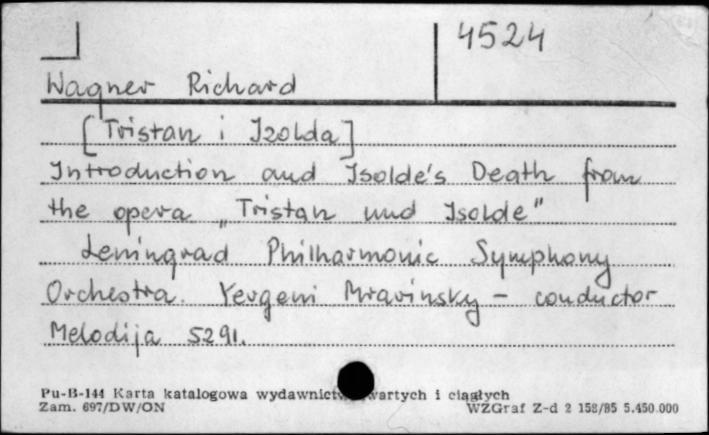 4524
Wagner Richard
[Tristan i Izolda]
Introduction and Isolde's Death from
the opera „Tristan und Isolde"
Leningrad Philharmonic Symphony
Orchestra. Yevgeni Mravinsky – conductor
Melodija 5291.
Pu-B-144 Karta katalogowa wydawnictw zwartych i ciągłych
Zam. 697/DW/ON WZGraf Z-d 2 158/85 5.450.000